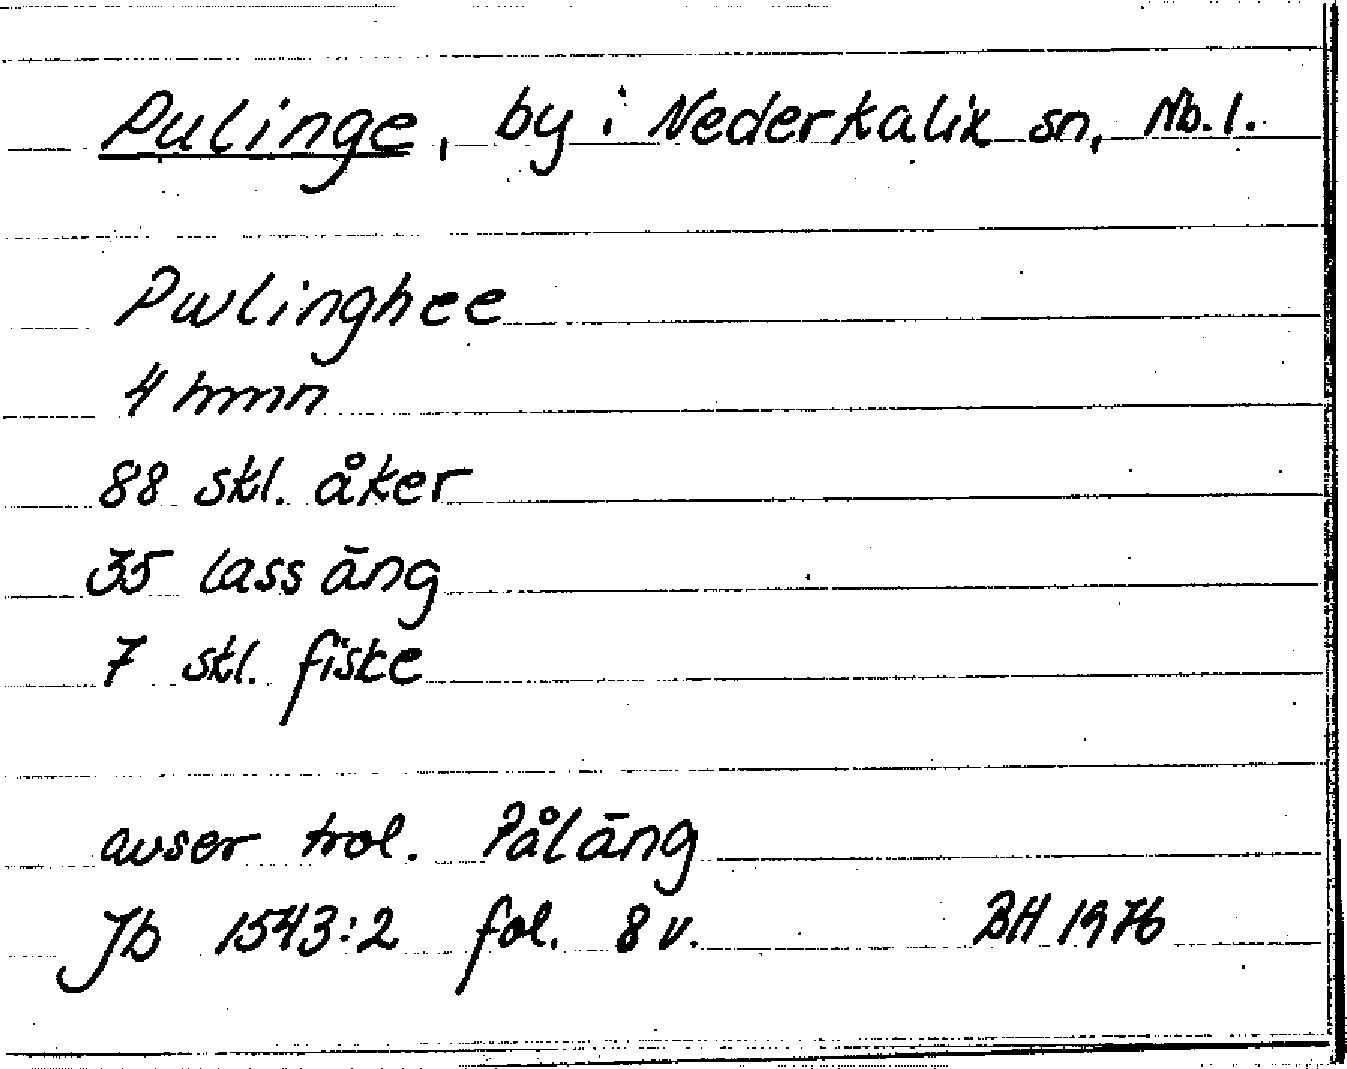 Pulinge, by i Nederkalix sn, Nb. l.
Pwlinghee
4 hmn
88 skl. åker
35 lass äng
7 skl. fiske
avser trol. Påläng
Jb 1543:2 fol. 8 v. BH 1976